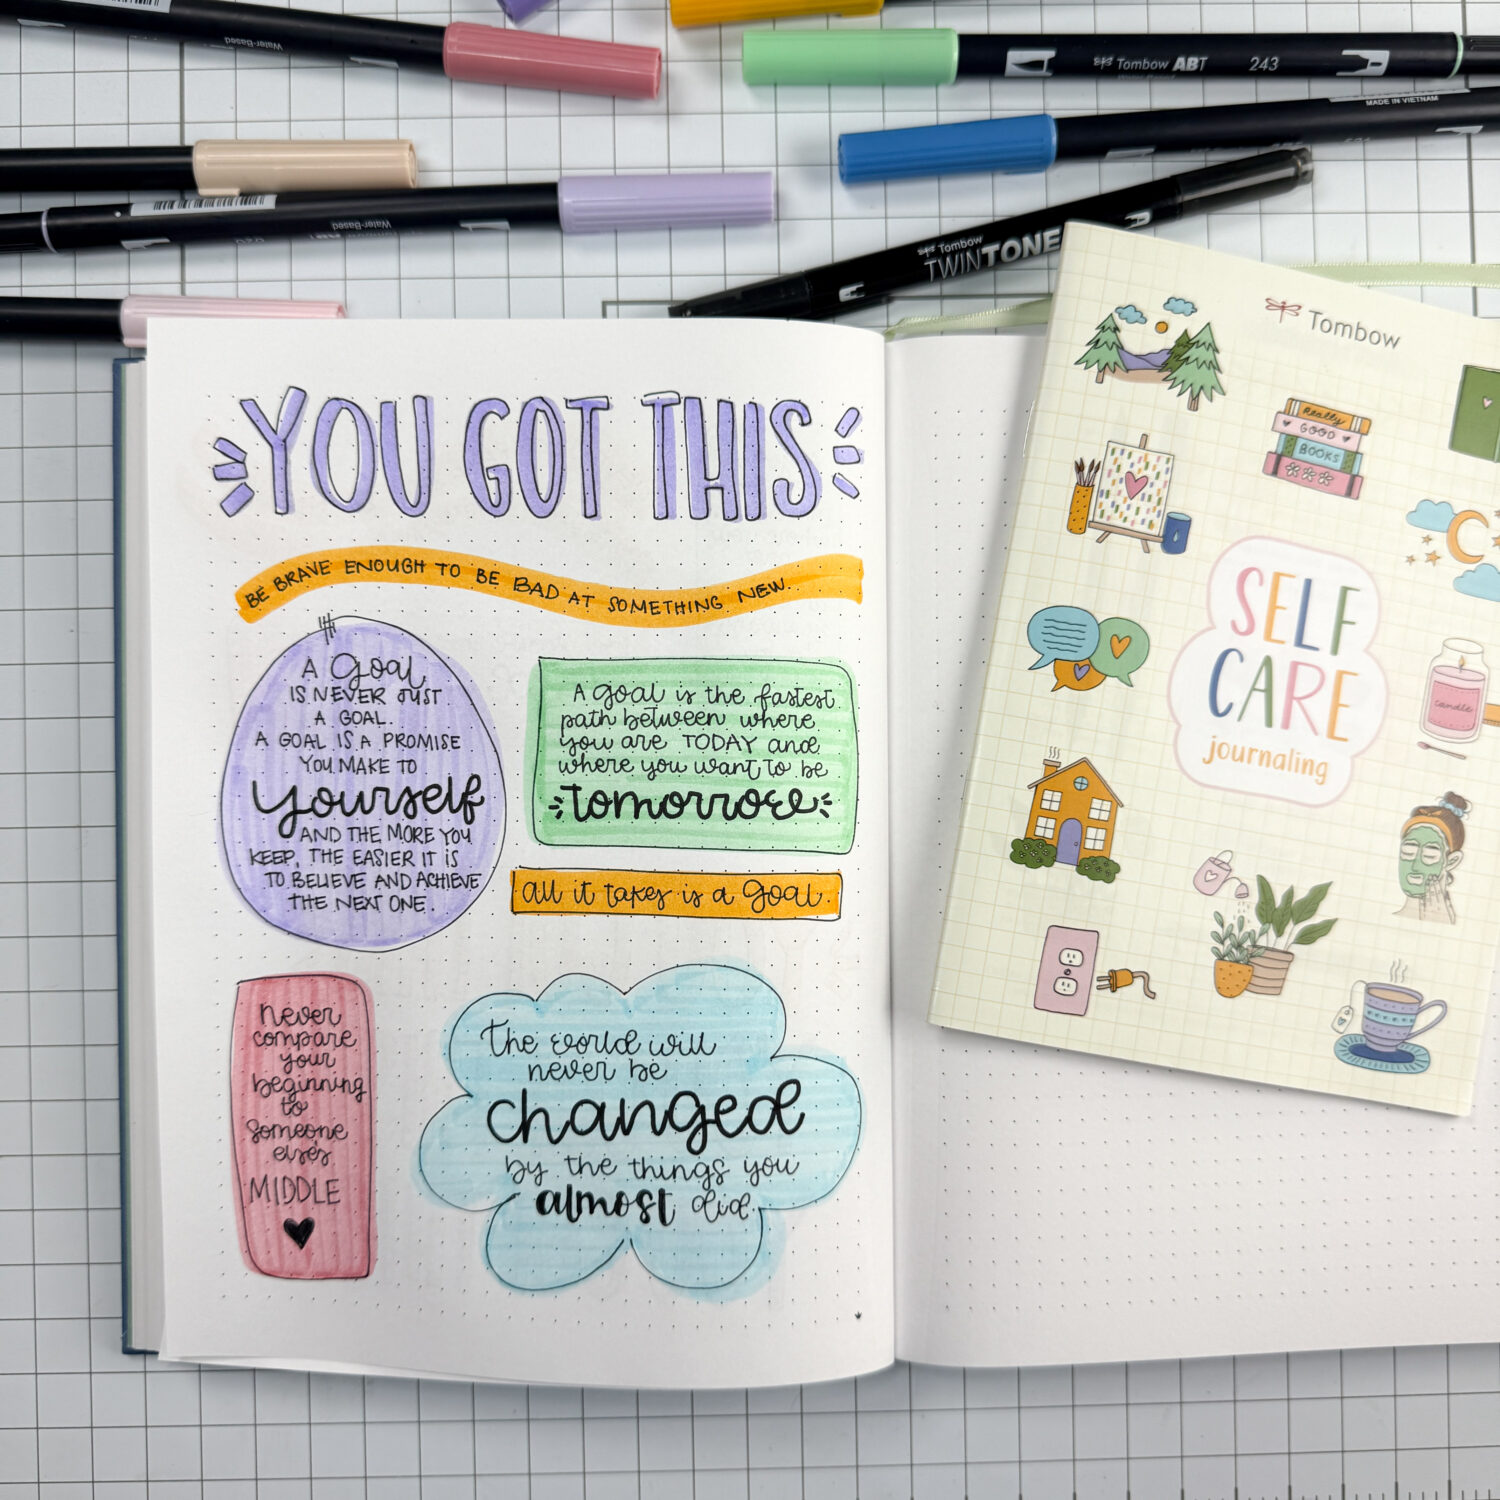 Water-Based
Tombow ABT
243
MADE IN VIETNAM
Water-Based
Tombow
TWINTONE
YOU GOT THIS
BE BRAVE ENOUGH TO BE BAD AT SOMETHING NEW.
A Goal
IS NEVER JUST
A GOAL.
A GOAL IS A PROMISE
YOU MAKE TO
yourself
AND THE MORE YOU
KEEP, THE EASIER IT IS
TO BELIEVE AND ACHIEVE
THE NEXT ONE.
A goal is the fastest
path between where
you are TODAY and
where you want to be
tomorrow
all it takes is a Goal.
never
compare
your
beginning
to
someone
else's
MIDDLE
the world will
never be
changed
by the things you
almost did.
Tombow
Really
GOOD
BOOKS
SELF
CARE
journaling
candle